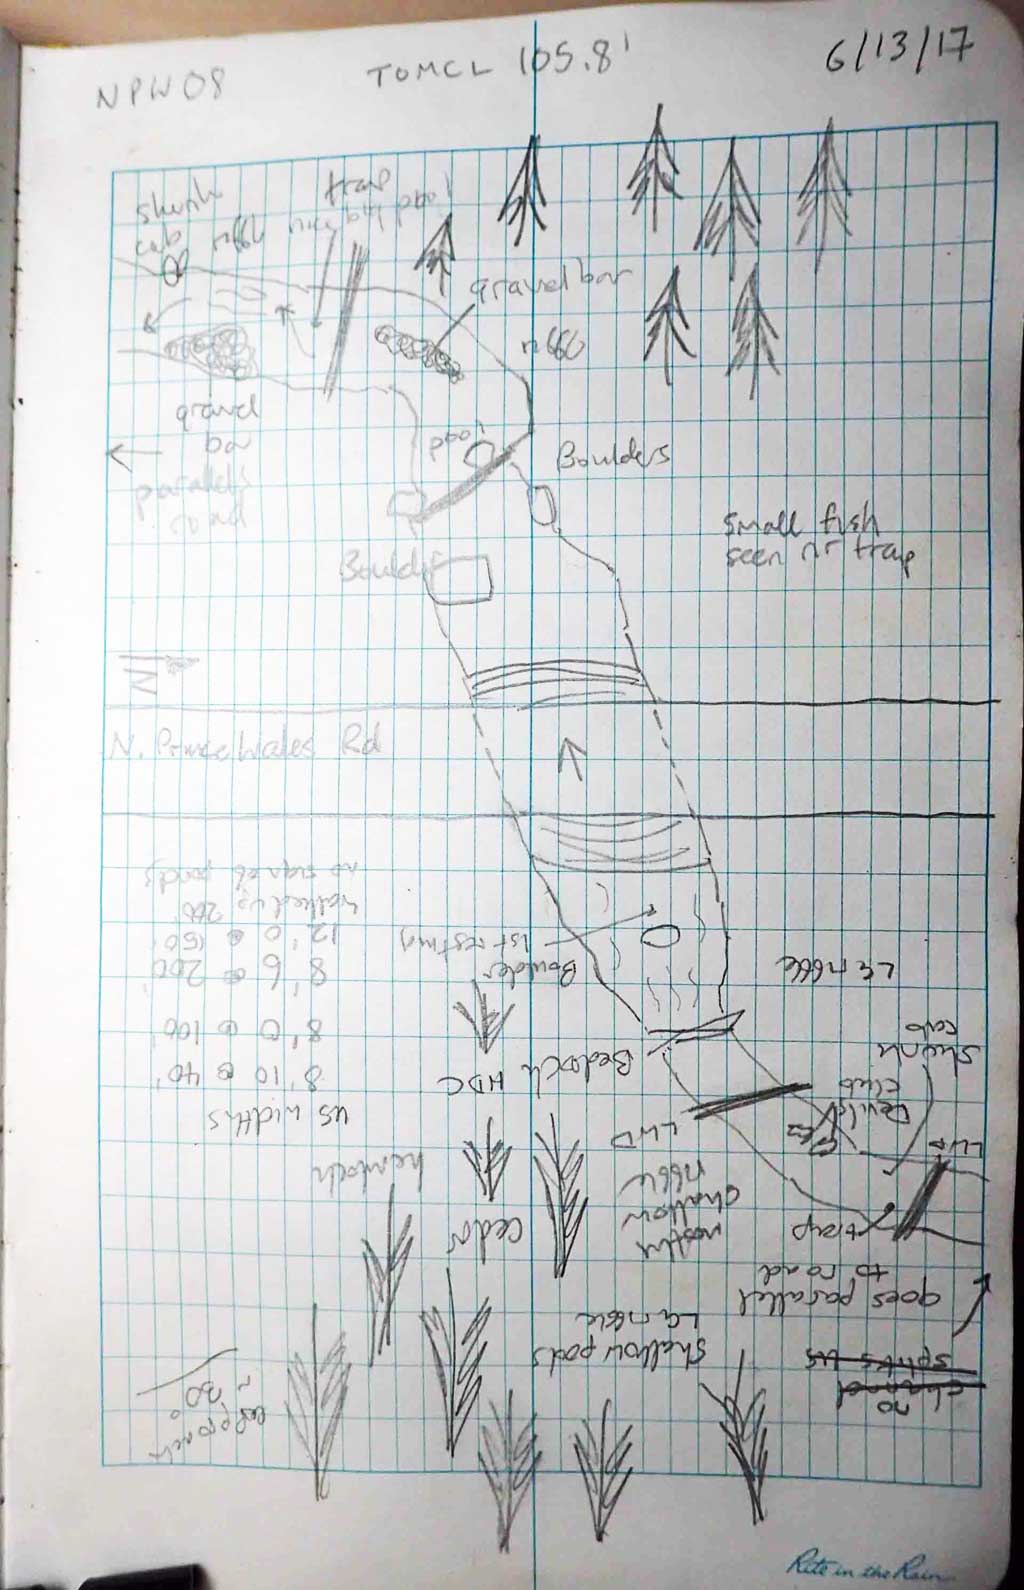 NPW08
TOMCL 105.8'
6/13/17
skunk
cab
riffle
trap
gravel bar
riffle
gravel
bar
parallels
road
pool
Boulders
Boulder
small fish
seen nr trap
N
N. Prince Wales Rd
no sign of ponds
walked us 200'
12', 0 @ 150'
8', 6 @ 200'
8', 0 @ 100'
8', 10 @ 40'
US widths
1st resting
Boulder
Lg rubble
Bedrock HDC
LWD
skunk
cab
Devils
club
LWD
hemlock
cedar
mostly
shallow
rubble
trap
goes parallel
to road
shallow pods
Lg rubble
no
channel
splits US
approach
~ 20°
Rite in the Rain